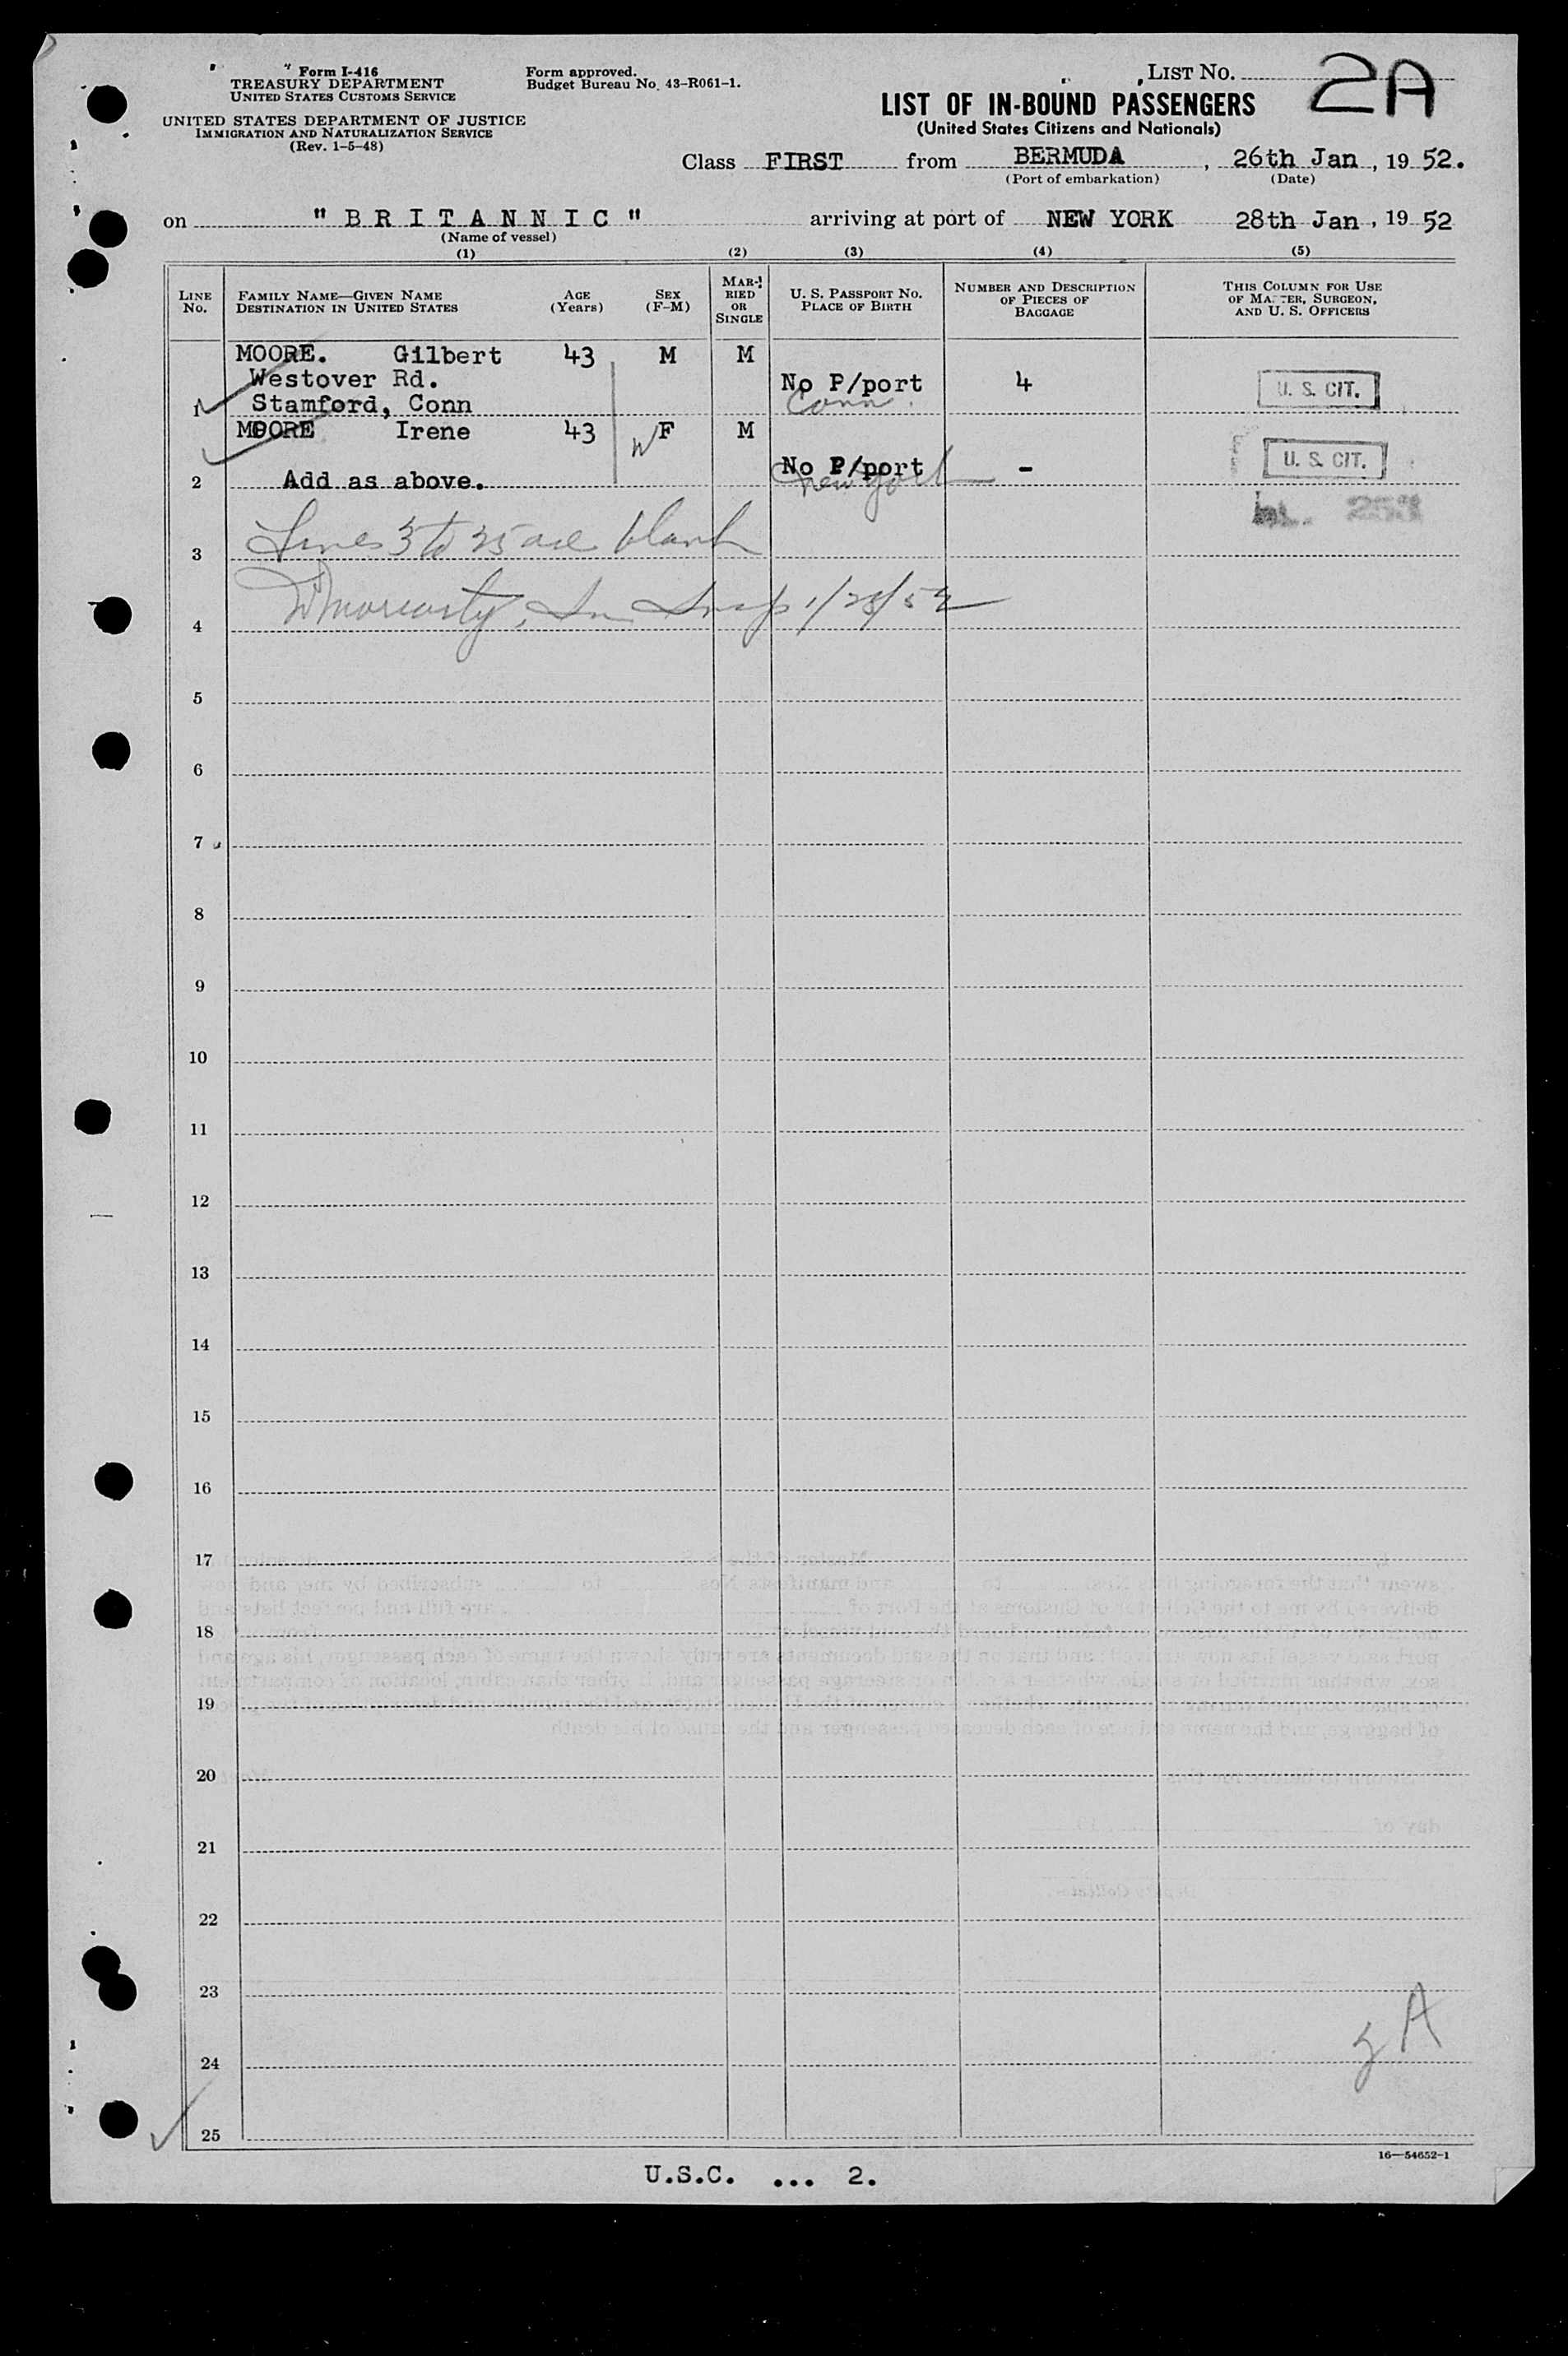 Form I-416
TREASURY DEPARTMENT
UNITED STATES CUSTOMS SERVICE
UNITED STATES DEPARTMENT OF JUSTICE
IMMIGRATION AND NATURALIZATION SERVICE
(Rev. 1-5-48)
Form approved.
Budget Bureau No. 43-R061-1.
LIST NO. 2A
LIST OF IN-BOUND PASSENGERS
(United States Citizens and Nationals)
Class FIRST from BERMUDA, 26th Jan, 19 52.
(Port of embarkation) (Date)
on "BRITANNIC" arriving at port of NEW YORK 28th Jan, 19 52
(Name of vessel)
(1) (2) (3) (4) (5)
LINE NO. FAMILY NAME—GIVEN NAME DESTINATION IN UNITED STATES AGE (Years) SEX (F-M) MARRIED OR SINGLE U. S. PASSPORT NO. PLACE OF BIRTH NUMBER AND DESCRIPTION OF PIECES OF BAGGAGE THIS COLUMN FOR USE OF MASTER, SURGEON, AND U. S. OFFICERS
MOORE. Gilbert 43 M M
Westover Rd. No P/port 4 U. S. CIT.
1 Stamford, Conn Conn.
MOORE Irene 43 W F M
No P/port - U. S. CIT.
2 Add as above. New York
3 Lines 3 to 25 are blank
4 Moriarty, Im Insp 1/28/52
5
6
7
8
9
10
11
12
13
14
15
16
17
18
19
20
21
22
23
24
25
16—54652-1
U.S.C. ... 2.